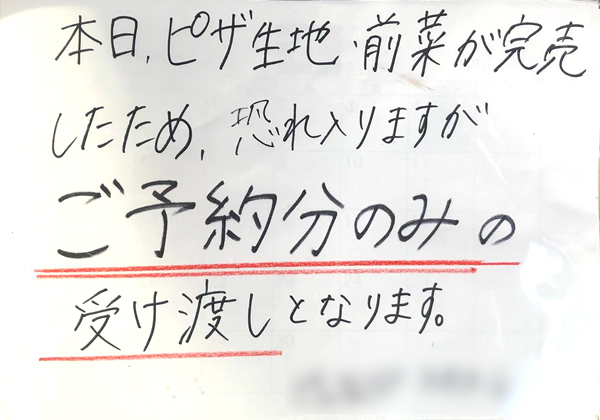 本日、ピザ生地・前菜が完売
したため、恐れ入りますが
ご予約分のみの
受け渡しとなります。